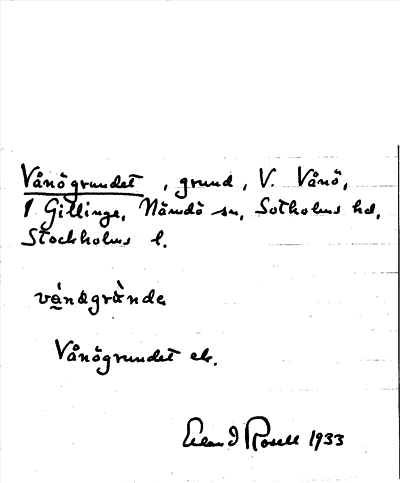 Vånögrundet, grund, V. Vånö,
1 Gillinge, Nämdö sn, Sotholms hd,
Stockholms l.
Vånögrundet ek.
Erland Rosell 1933